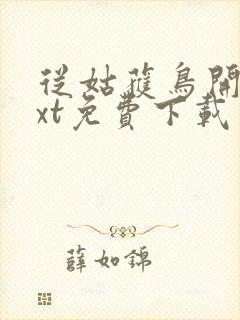 從姑蘓鳥開
xt免費下載
薛如錦